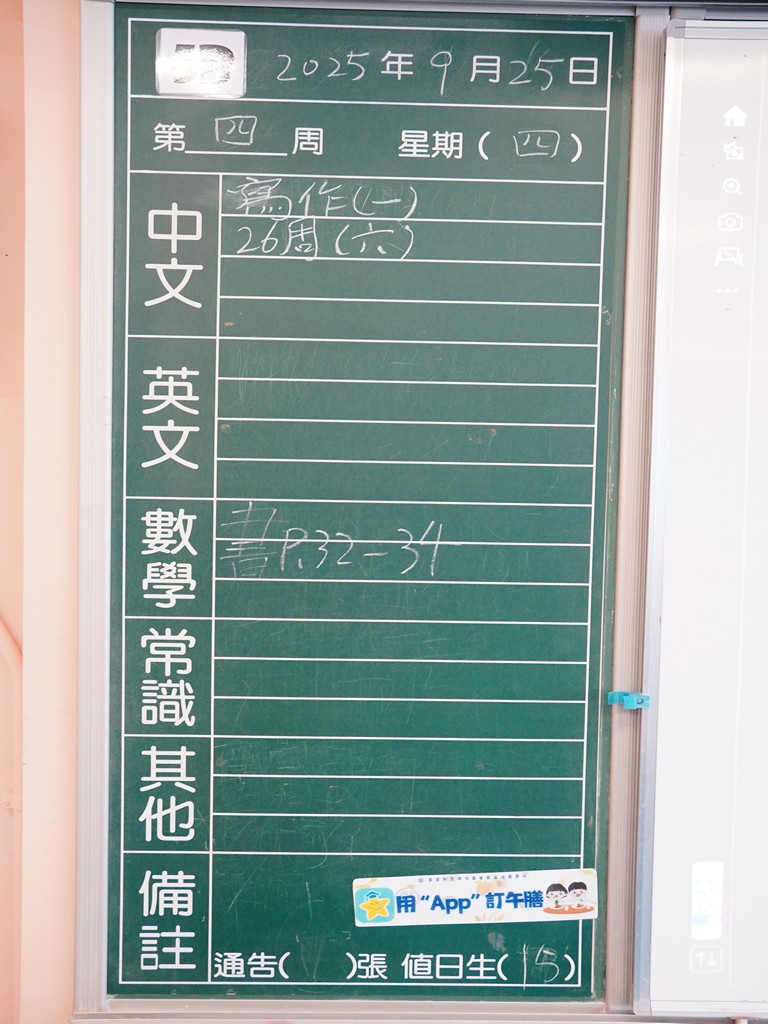 2025年9月25日
第四周 星期(四)
中文
寫作(一)
26周(六)
英文
數學
書P.32-34
常識
其他
備註
用“App”訂午膳
通告( )張 值日生(15)